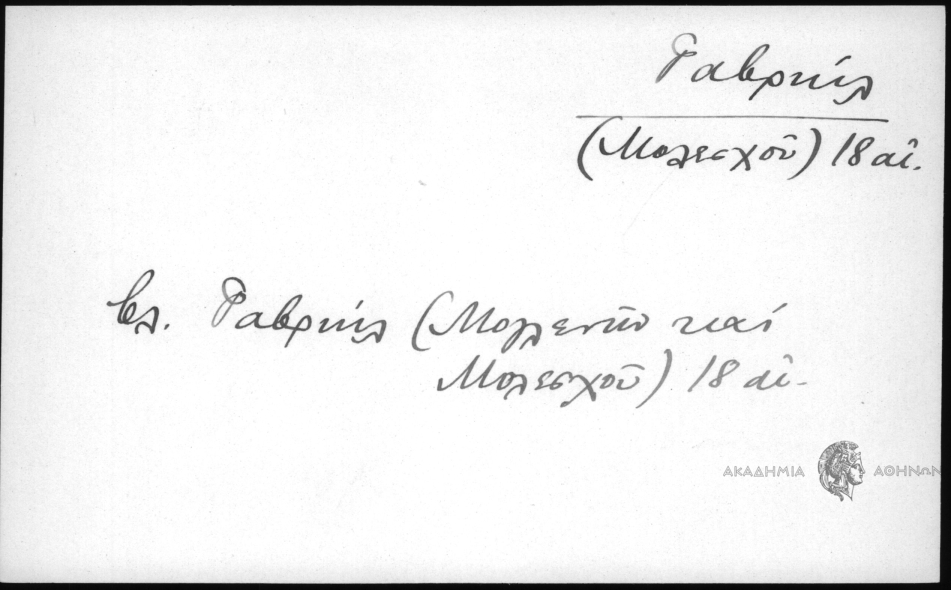 Γαβριήλ
(Μολεσχοῦ) 18 αἰ.
βλ. Γαβριήλ (Μογλενῶν καί
Μολεσχοῦ) 18 αἰ.
ΑΚΑΔΗΜΙΑ ΑΘΗΝΩΝ